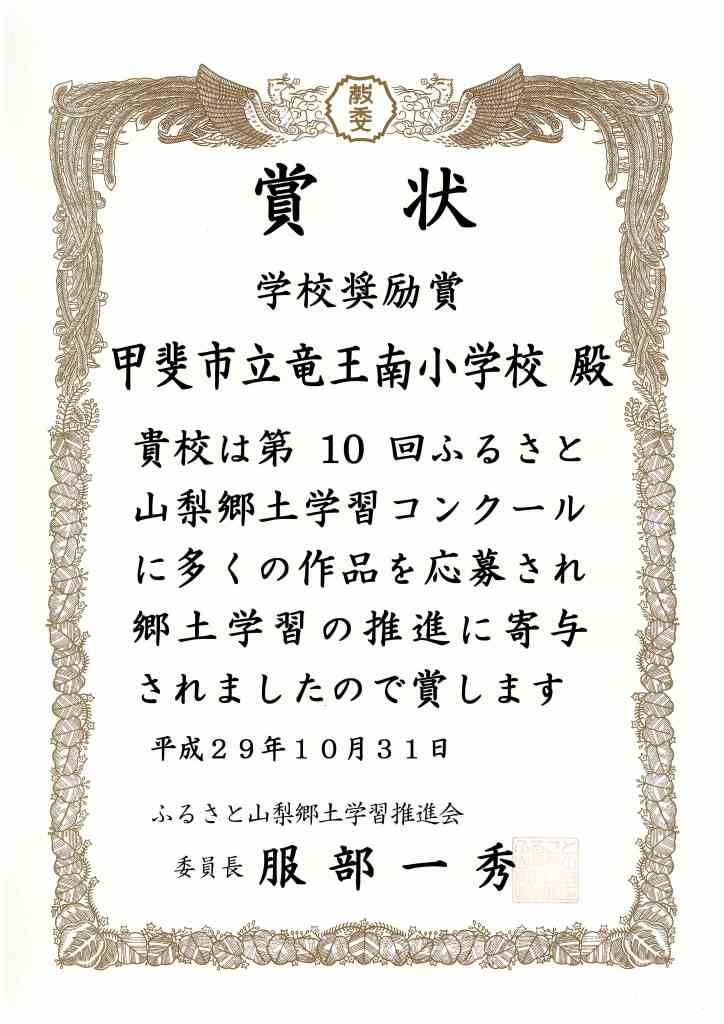 教委
賞 状
学校奨励賞
甲斐市立竜王南小学校 殿
貴校は第 10 回ふるさと
山梨郷土学習コンクール
に多くの作品を応募され
郷土学習の推進に寄与
されましたので賞します
平成29年10月31日
ふるさと山梨郷土学習推進会
委員長 服部一秀